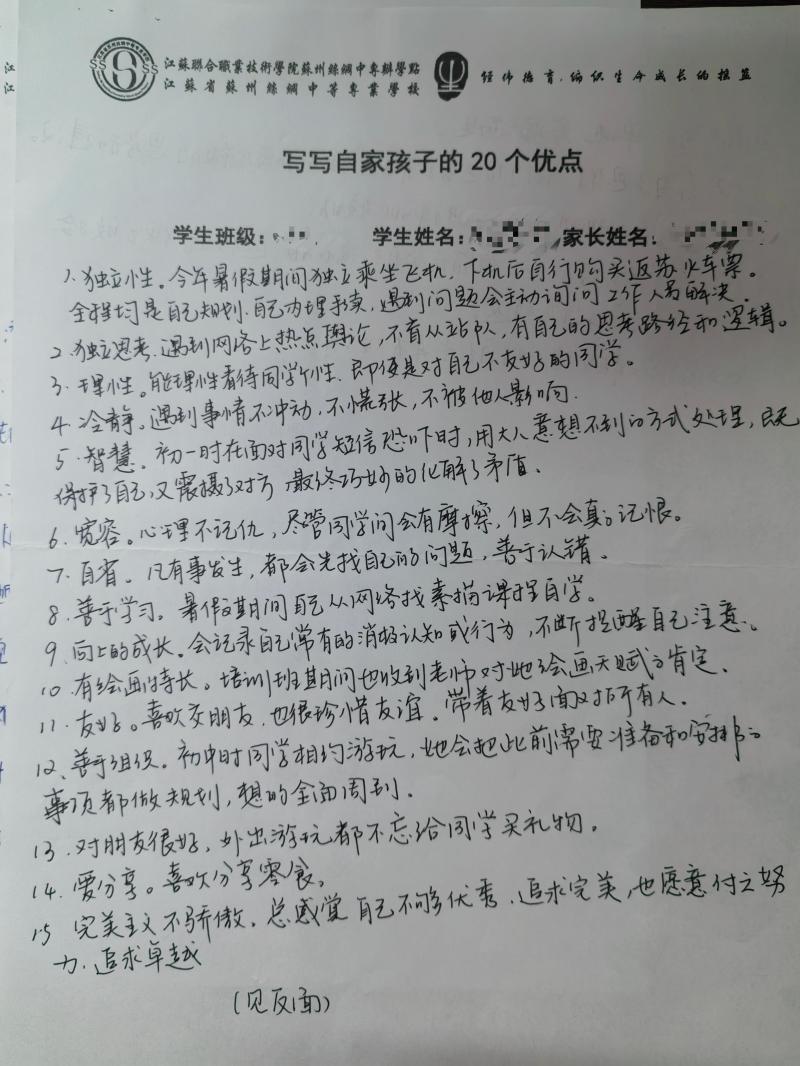 江蘇聯合職業技術學院蘇州絲綢中專辦學點
江蘇省蘇州絲綢中等專業學校
经纬德育,编织生命成长的摇篮
写写自家孩子的 20 个优点
学生班级: 学生姓名: 家长姓名:
1.独立性。今年暑假期间独立乘坐飞机,下机后自行购买返苏火车票。
全程均是自己规划.自己办理手续,遇到问题会主动询问工作人员解决.
2.独立思考.遇到网络上热点舆论,不盲从站队,有自己的思考路径和逻辑。
3.理性。能理性看待同学个性.即便是对自己不友好的同学。
4.冷静。遇到事情不冲动,不慌张,不被他人影响.
5.智慧。初一时在面对同学短信恐吓时,用大人意想不到的方式处理,既
保护了自己,又震摄了对方 最终巧妙的化解了矛盾.
6.宽容。心理不记仇,尽管同学间会有摩擦,但不会真的记恨。
7.自省。凡有事发生,都会先找自己的问题,善于认错。
8.善于学习。暑假期间自己从网络找素描课程自学。
9.向上的成长。会记录自己常有的消极认知或行为,不断提醒自己注意.
10.有绘画特长。培训班期间也收到老师对她绘画天赋的肯定.
11.友好。喜欢交朋友,也很珍惜友谊。带着友好面对所有人.
12.善于组织。初中时同学相约游玩,她会把此前需要准备和安排的
事项都做规划,想的全面周到.
13.对朋友很好,外出游玩都不忘给同学买礼物。
14.爱分享。喜欢分享零食。
15 完美主义不骄傲。总感觉自己不够优秀.追求完美,也愿意付之努
力.追求卓越
(见反面)